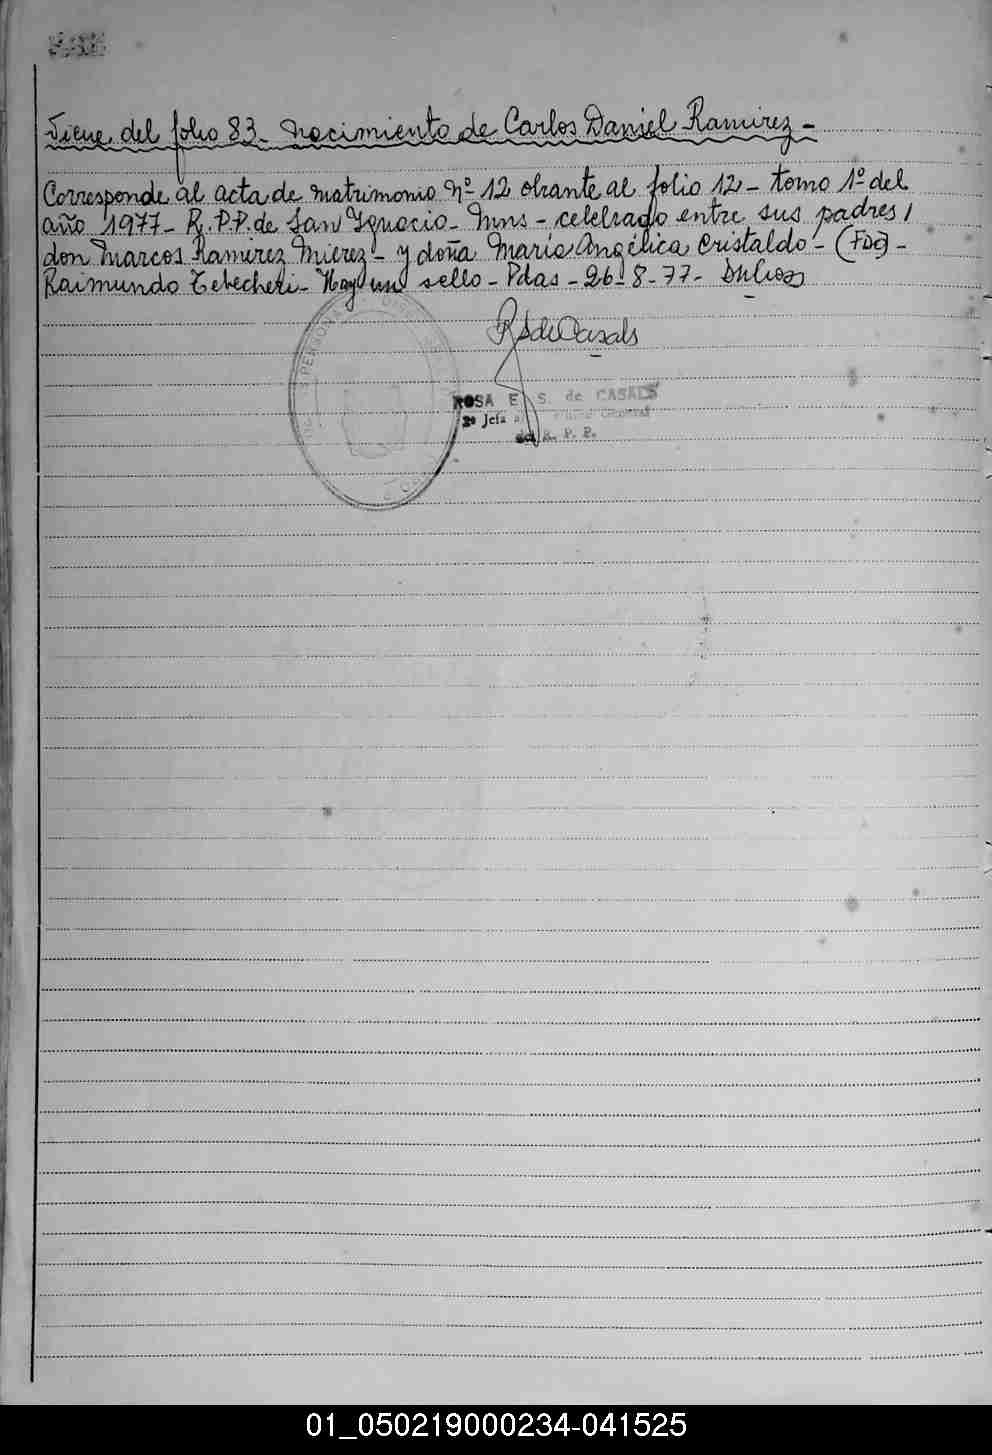 Viene del folio 83 - Nacimiento de Carlos Daniel Ramirez -
Corresponde al acta de matrimonio Nº 12 obrante al folio 12 - tomo 1º del
año 1977 - R.P.P. de San Ignacio - Mns - celebrado entre sus padres /
don Marcos Ramirez Mierez - y doña Maria Angélica Cristaldo - (Fdo) -
Raimundo Tebecheri - Hay un sello - Pdas - 26-8-77 -
RSdeCasals
ROSA E. S. de CASALS
2º Jefa
del R. P. P.
01_050219000234-041525